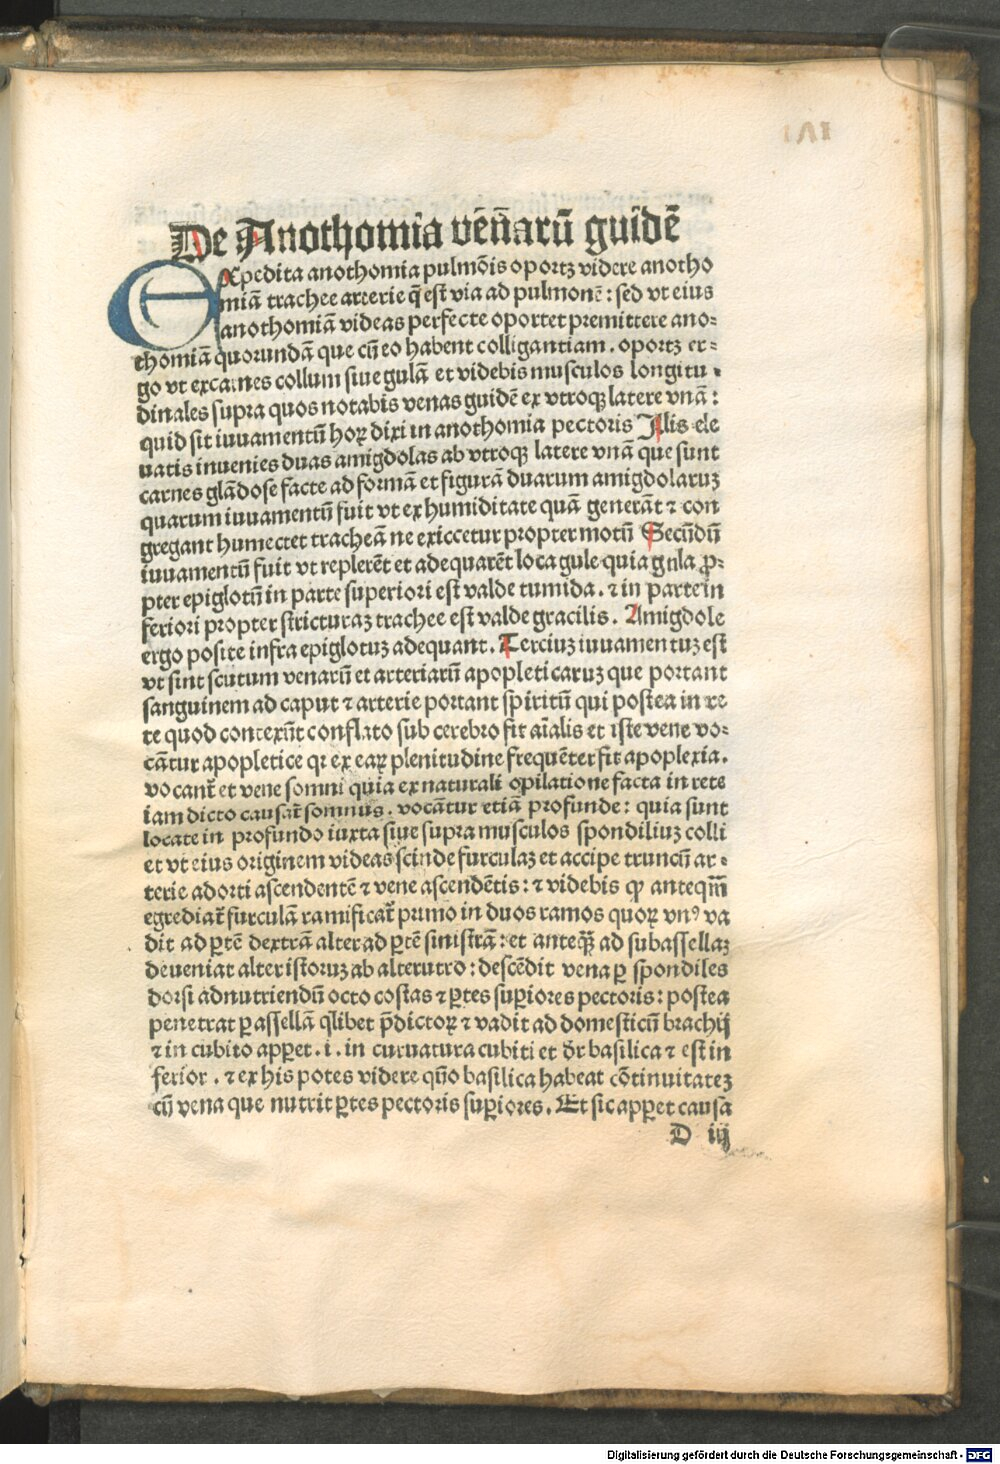 De Anothomia vēn̄arū guidē
Expedita anothomia pulmōis oportꝫ videre anotho
miā trachee arterie q̄ est via ad pulmonē: sed vt eius
anothomiā videas perfecte oportet premittere ano⸗
thomiā quorundā que cū eo habent colligantiam. oportꝫ er⸗
go vt excarnes collum siue gulā et videbis musculos longitu⸗
dinales supra quos notabis venas guidē ex vtroqꝫ latere vnā:
quid sit iuuamentū hoꝝ dixi in anothomia pectoris Illis ele
uatis inuenies duas amigdolas ab vtroqꝫ latere vnā que sunt
carnes glādose facte ad formā et figurā duarum amigdolaruꝫ
quarum iuuamentū fuit vt ex humiditate quā generāt ⁊ con
gregant humectet tracheā ne exiccetur propter motū Secūdū
iuuamentū fuit vt replerēt et adequarēt loca gule quia gula ꝓ⸗
pter epiglotū in parte superiori est valde tumida. ⁊ in parte in
feriori propter stricturaꝫ trachee est valde gracilis. Amigdole
ergo posite infra epiglotuꝫ adequant. Terciuꝫ iuuamentuꝫ est
vt sint scutum venarū et arteriarū apopleticaruꝫ que portant
sanguinem ad caput ⁊ arterie portant spiritū qui postea in re
te quod contexūt conflato sub cerebro fit aīalis et iste vene vo⸗
cātur apopletice qꝛ ex eaꝝ plenitudine frequēter fit apoplexia.
vocant᷑ et vene somni quia ex naturali opilatione facta in rete
iam dicto causat᷑ somnus. vocātur etiā profunde: quia sunt
locate in profundo iuxta siue supra musculos spondiliuꝫ colli
et vt eius originem videas scinde furculaꝫ et accipe truncū ar⸗
terie adorti ascendentē ⁊ vene ascendētis: ⁊ videbis ꝙ anteqm̄
egrediat᷑ furculā ramificat᷑ primo in duos ramos quoꝝ vnꝰ va
dit ad ꝑtē dextrā alter ad ꝑtē sinistrā: et anteq̄ȝ ad subassellaꝫ
deueniat alter istoruꝫ ab alterutro: descēdit vena ꝑ spondiles
dorsi ad nutriendū octo costas ⁊ ꝑtes suꝑiores pectoris: postea
penetrat ꝑ assellā qͥlibet p̄dictoꝝ ⁊ vadit ad domesticū brachij
⁊ in cubito apꝑet. i. in curuatura cubiti et dr̄ basilica ⁊ est in
ferior. ⁊ ex his potes videre qūo basilica habeat cōtinuitateꝫ
cū vena que nutrit ꝑtes pectoris suꝑiores. Et sic apꝑet causa
D iij
Digitalisierung gefördert durch die Deutsche Forschungsgemeinschaft - DFG